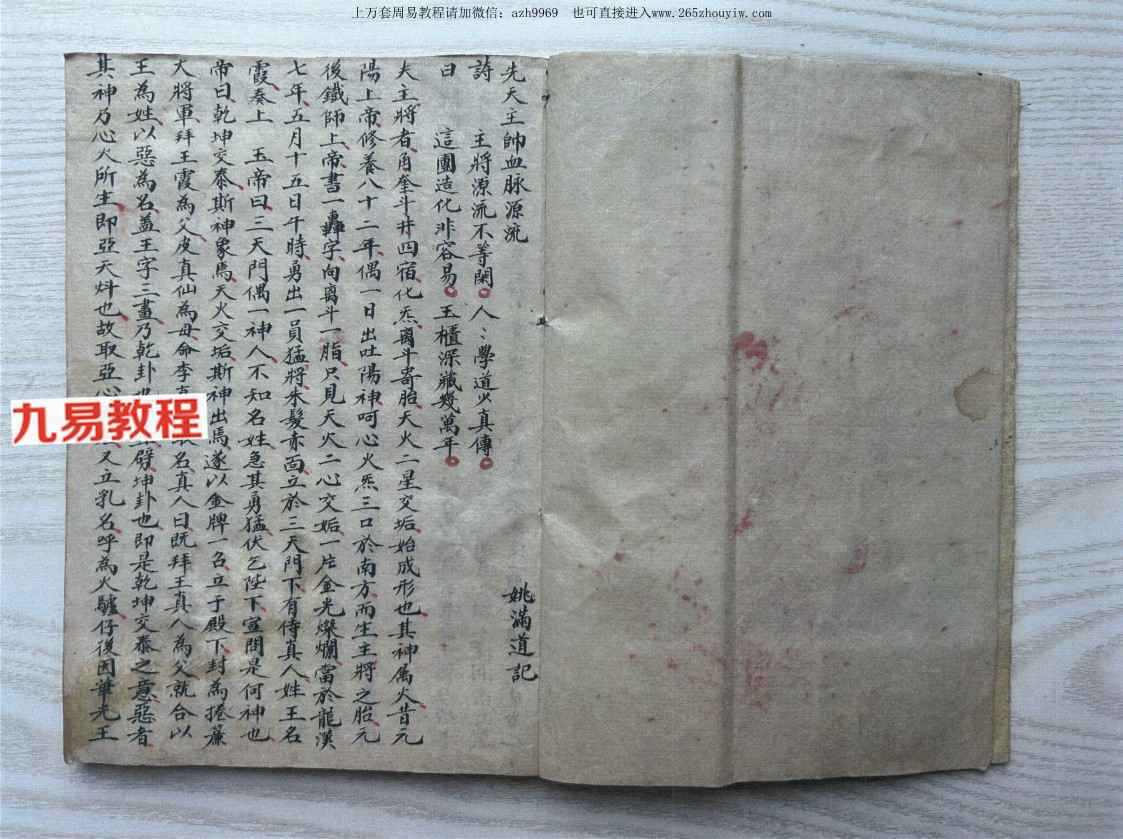 上万套周易教程请加微信：azh9969　也可直接进入www.265zhouyiw.com
先天主帥血脉源流　姚滿道記
詩　主將源流不等閑　人〻學道少真傳
曰　這團造化非容易　玉櫃深藏幾萬年
夫主將者角奎斗井四宿化炁离斗寄胎天火二星交垢始成形也其神属火昔元
陽上帝修養八十二年偶一日出吐陽神呵心火炁三口於南方而生主將之胎元
後鐵師上帝書一轟字向离斗一脂只見天火二心交姤一片金光燦爛當於龍漢
七年五月十五日午時勇出一員猛將朱髮赤面立於三天門下有侍真人姓王名
霞奏上　玉帝曰三天門偶一神人不知名姓急其勇猛伏乞陛下宣問是何神也
帝曰乾坤交泰斯神象馬天火交垢斯神出馬遂以金牌一召立于殿下封為捲簾
大將軍拜王霞為父皮真仙為母命李真名真人曰既拜王真人為父就合以
王為姓以惡為名蓋王字三畫乃乾卦劈坤卦也即是乾坤交泰之意惡者
其神乃心火所生即亞天斗也故取亞心又立乳名呼為火驢仔後因華光王
九易教程